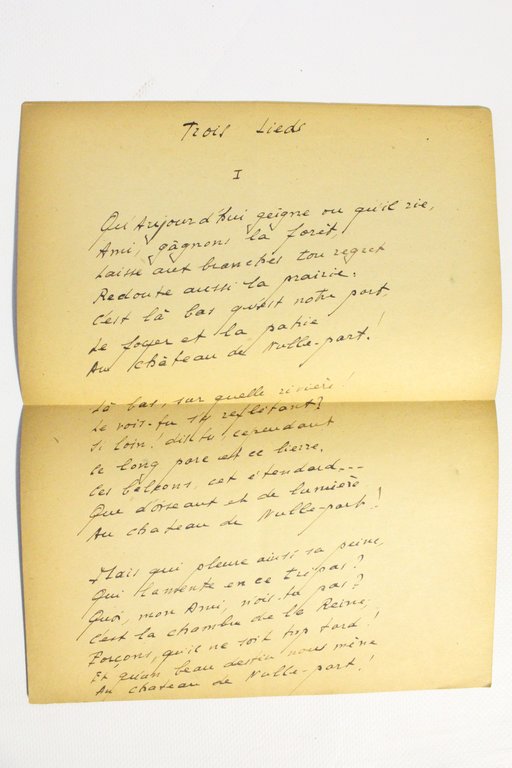 Trois Lieds
I
Qu'Aujourd'hui geigne ou qu'il rie,
Ami, gâgnons la forêt.
Laisse aux branches ton regret
Redoute aussi la prairie.
C'est là bas qu'est notre part,
Le foyer et la patrie
Au Château de Nulle-part!
Là bas, sur quelle rivière!
Le vois-tu se reflétant?
Si loin! dis-tu! cependant
Ce long parc et ce lierre,
Ces balcons, cet étendard...
Que d'oiseaux et de lumière
Au chateau de Nulle-part!
Mais qui pleure ainsi sa peine,
Qui lamente en ce trépas?
Quoi, mon Ami, n'ois-tu pas?
C'est la chambre de la Reine,
Forçons, qu'il ne soit trop tard!
Et qu'un beau destin nous mène
Au chateau de Nulle-part!